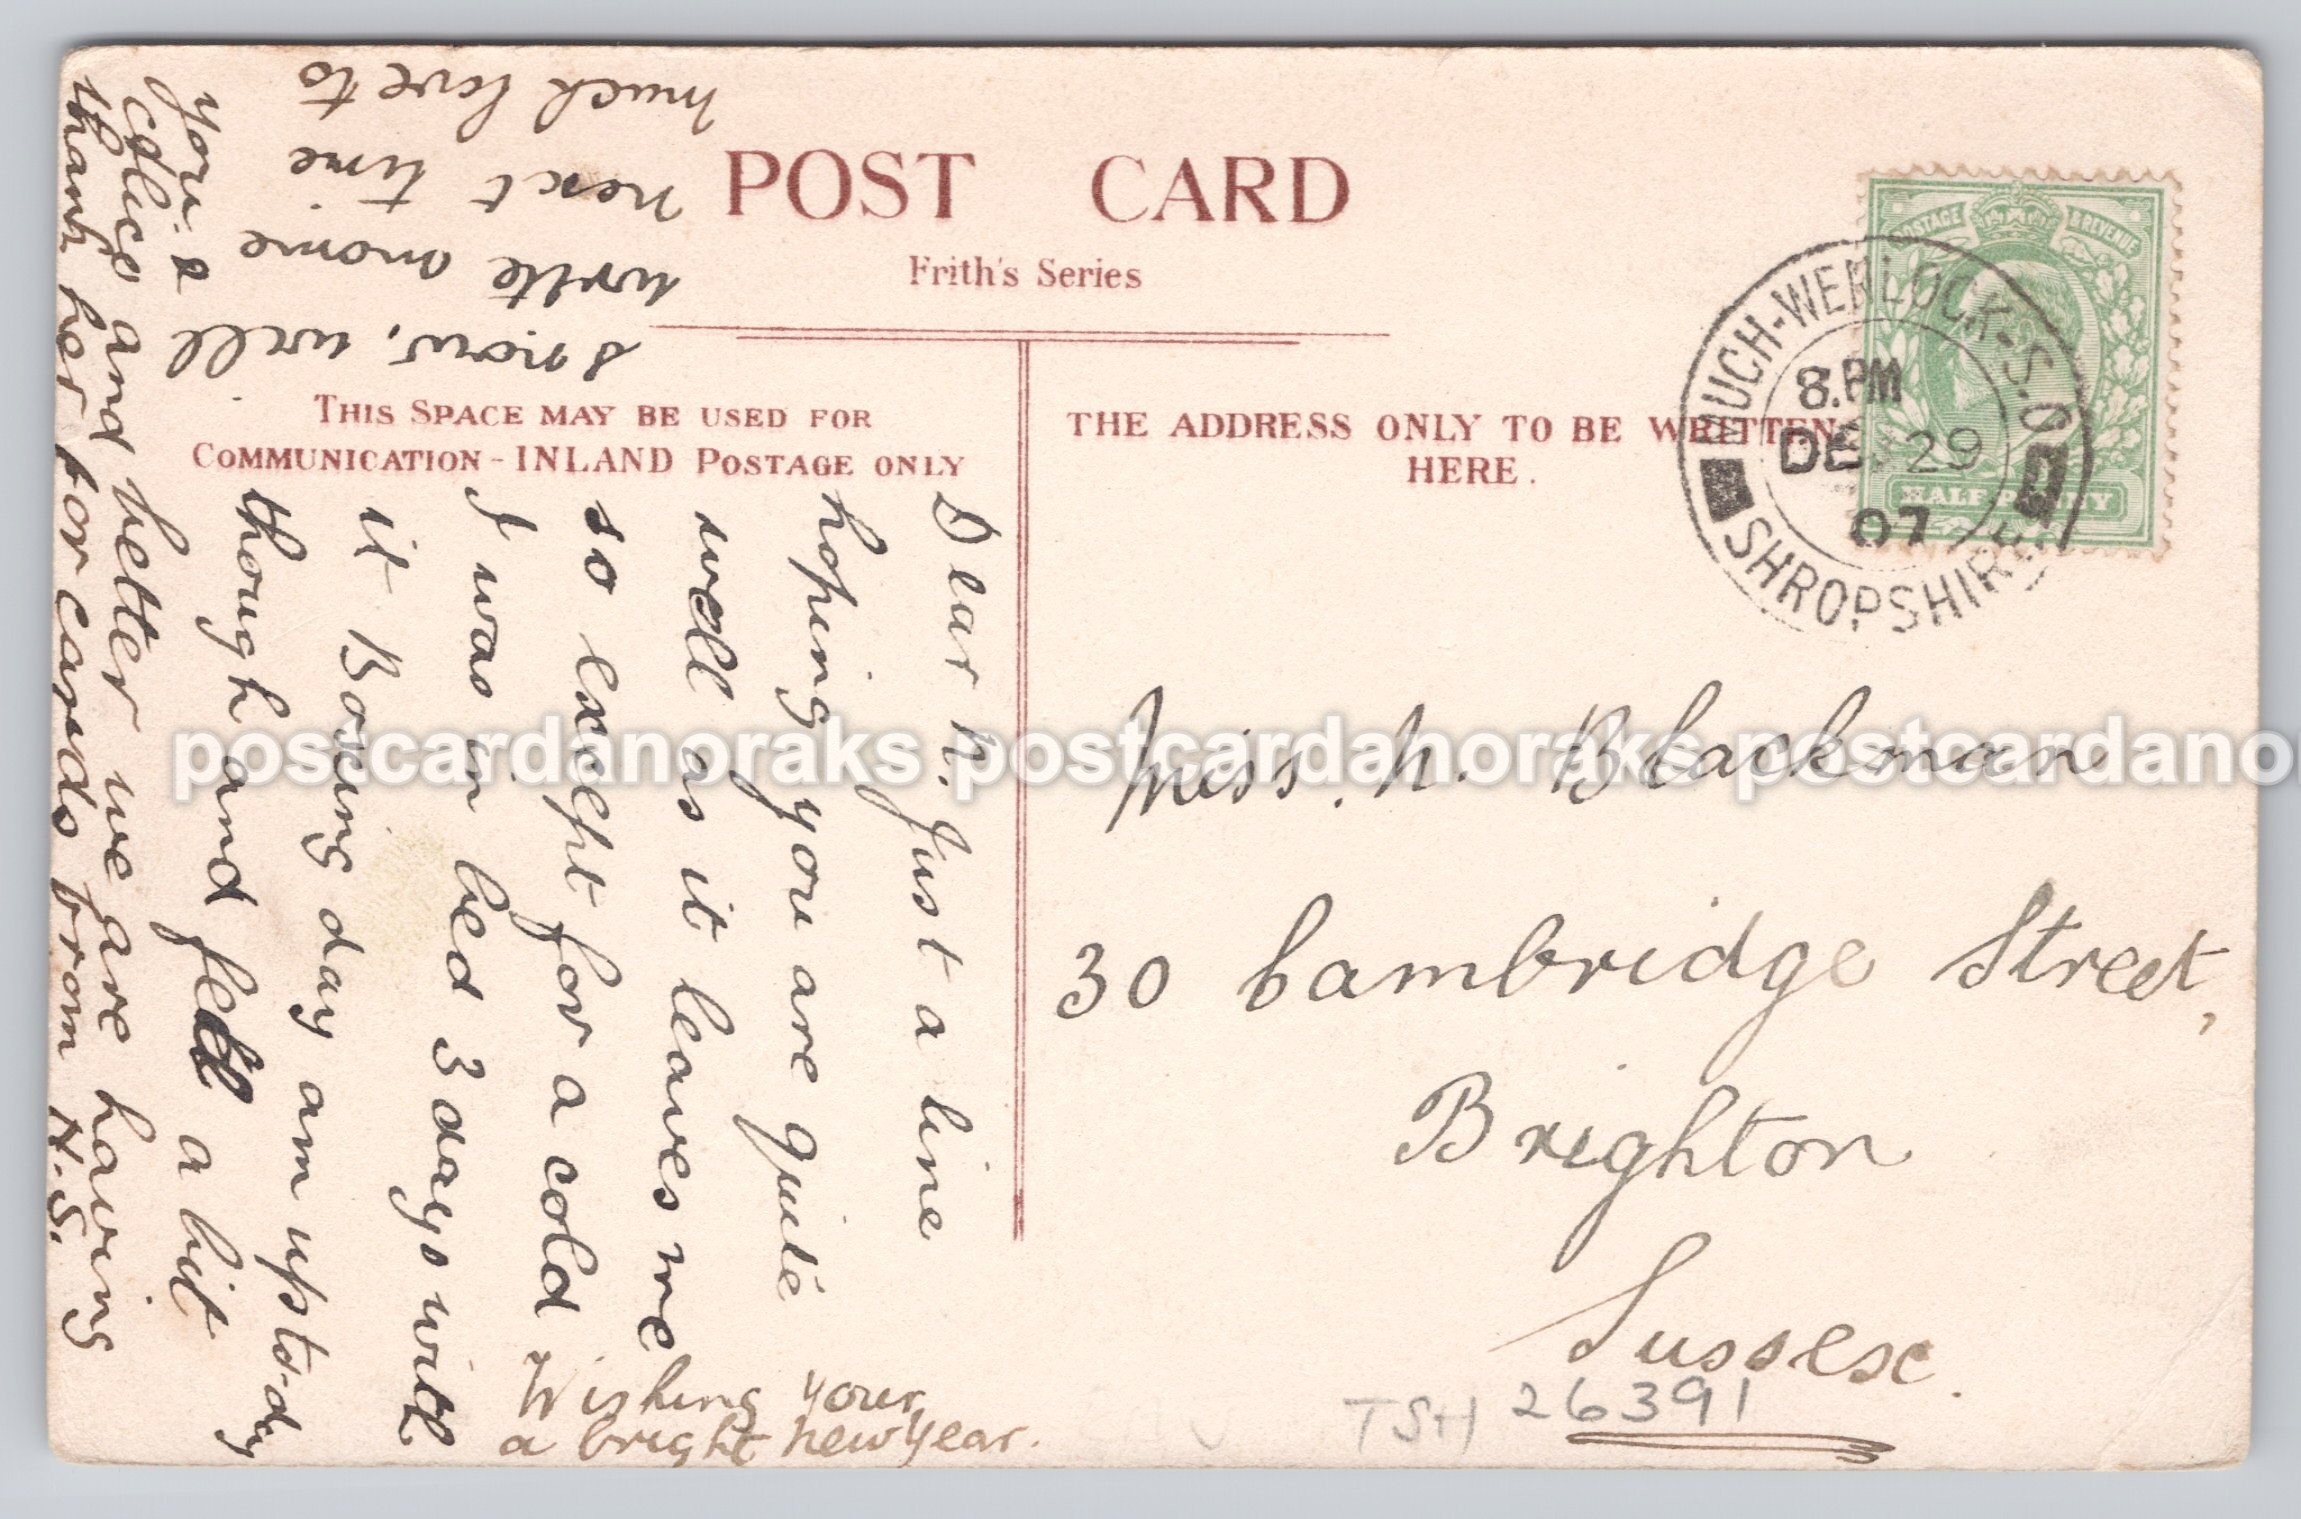 POST CARD
Frith's Series
THIS SPACE MAY BE USED FOR
COMMUNICATION - INLAND POSTAGE ONLY
THE ADDRESS ONLY TO BE WRITTEN
HERE.
MUCH-WENLOCK-S.O
8.PM
DE 29
07
SHROPSHIRE
POSTAGE & REVENUE
HALF PENNY
Miss. N. Blackman
30 Cambridge Street,
Brighton
Sussex.
TSH 26391
Dear N. Just a line
hoping you are quite
well as it leaves me
so except for a cold
I was in bed 3 days with
it Boxing day am up to-day
though and feel a bit
better we are having
snow, will
write more
next time
much love to
you. &
and
thank her for cards from H.S.
Wishing your
a bright new year.
postcardanoraks postcardanoraks postcardano